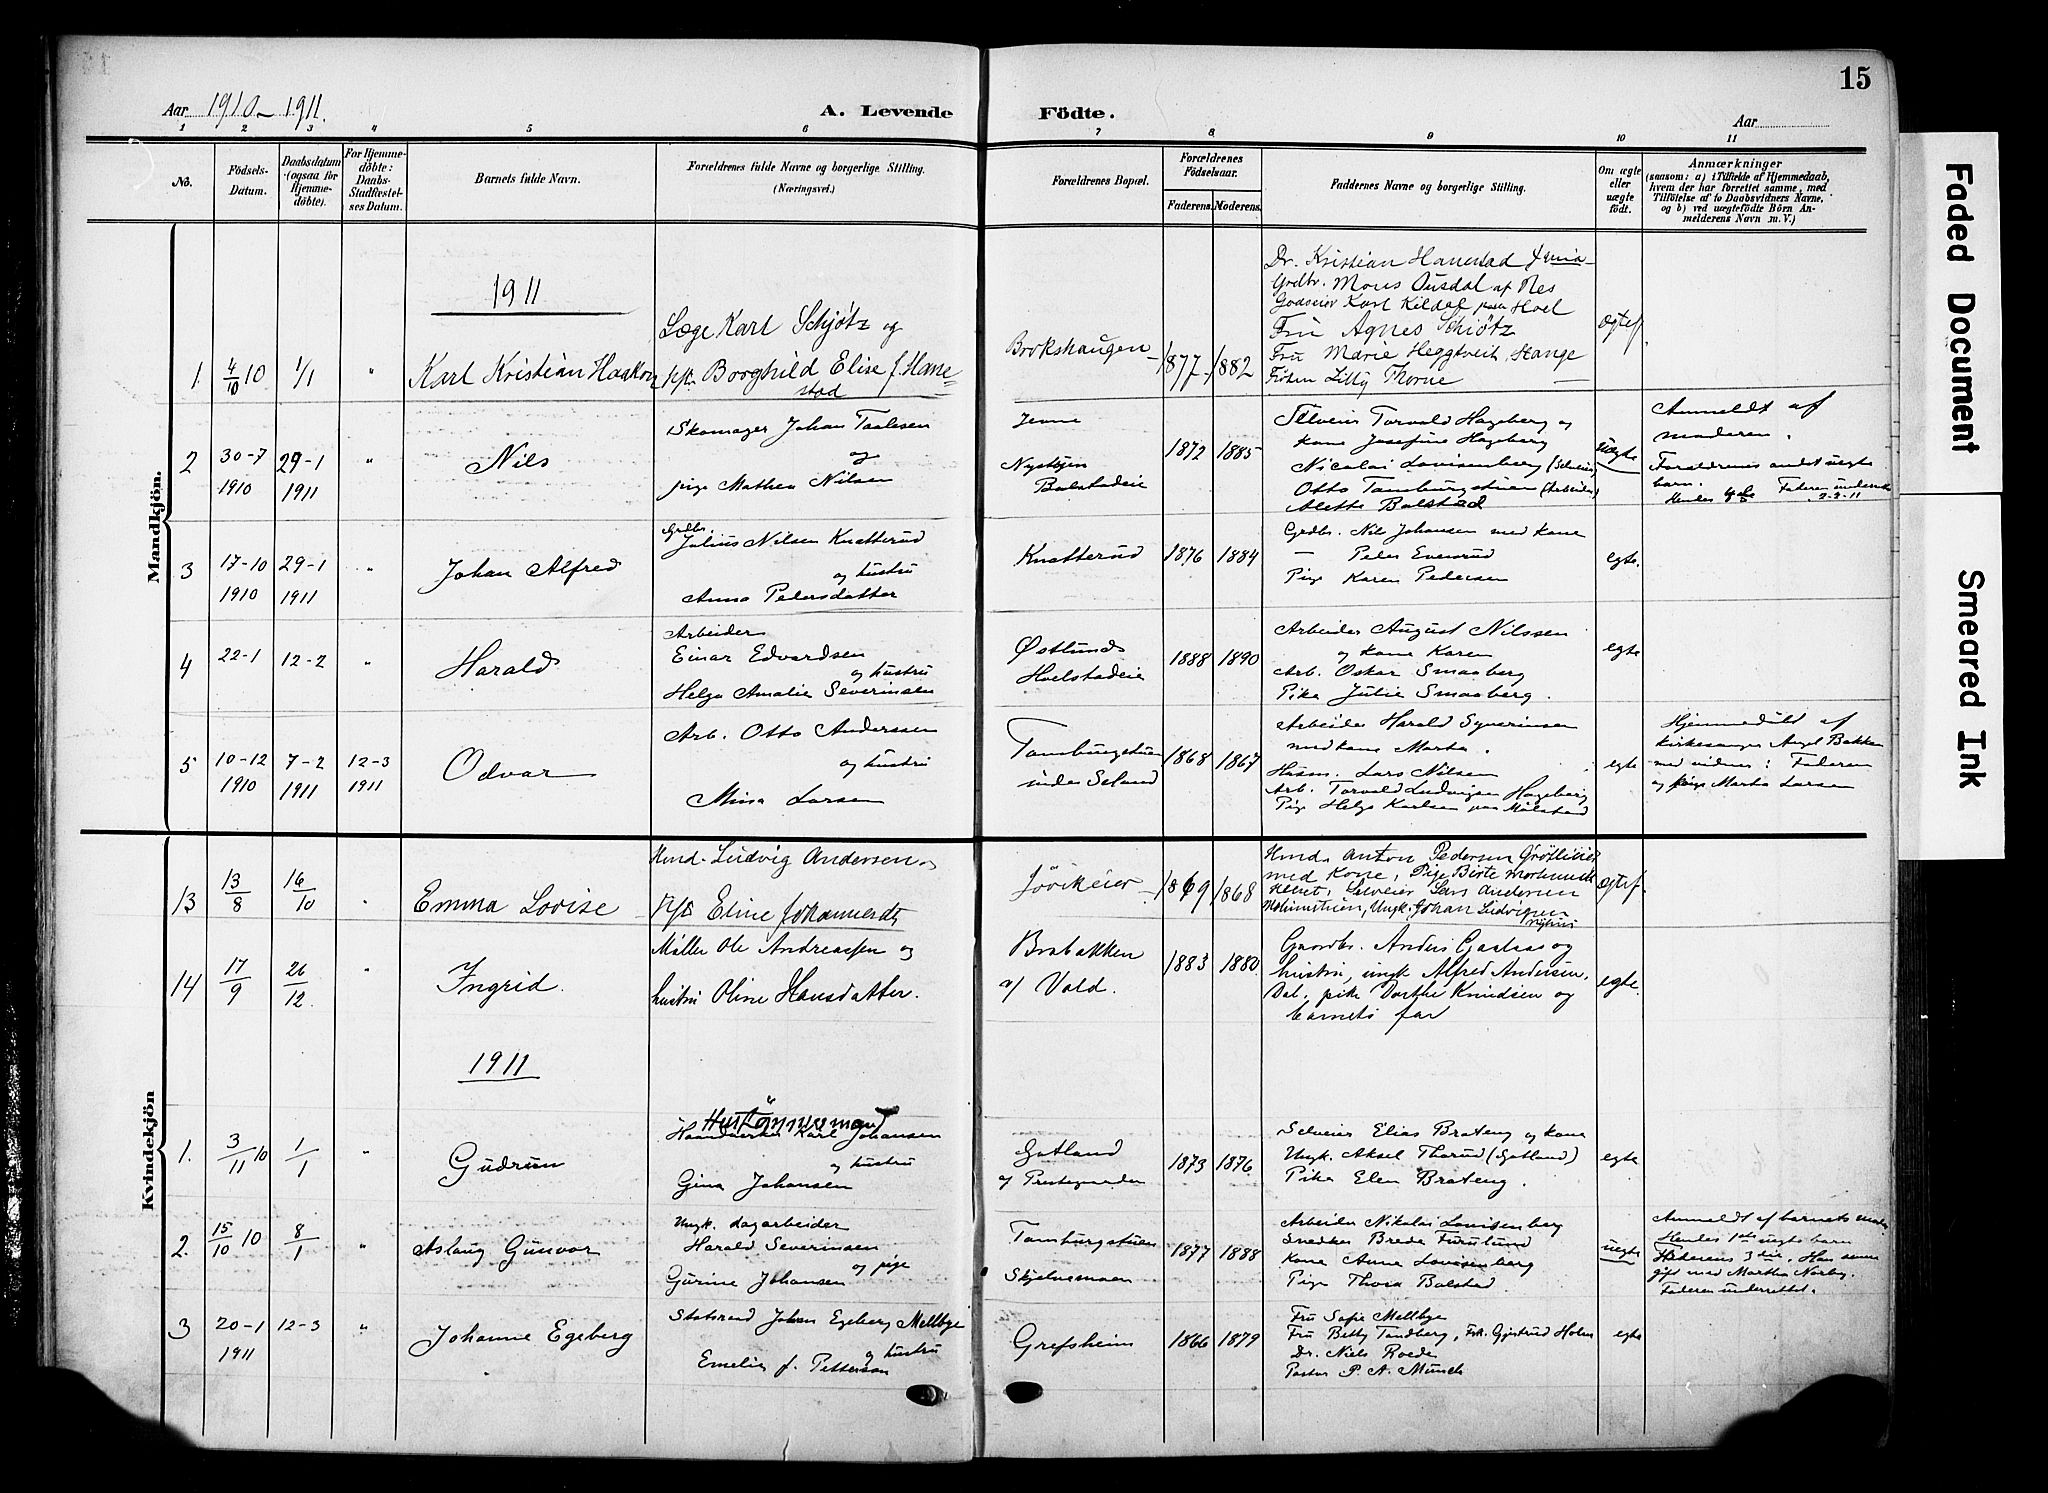 15
Aar 1910-1911.
A. Levende Födte.
Aar
1 2 3 4 5 6 7 8 9 10 11
No.
Födsels-Datum.
Daabsdatum (ogsaa for Hjemmedöbte).
For Hjemmedöbte: Daabs-Stadfæstelses Datum.
Barnets fulde Navn.
Forældrenes fulde Navne og borgerlige Stilling.
(Næringsvei.)
Forældrenes Bopæl.
Forældrenes Födselsaar.
Faderens. Moderens.
Faddernes Navne og borgerlige Stilling.
Om ægte eller uægte födt.
Anmærkninger
(saasom: a) i Tilfælde af Hjemmedaab, hvem der har forrettet samme, med Tilföielse af to Daabsvidners Navne, og b) ved uægtefödte Börn Anmelderens Navn m. V.)
Mandkjön.
1911
1. 4/10 10 1/1 " Karl Kristian Haakon
Læge Karl Schjøtz og
Borghild Elise f. Hanestad
Brokshaugen 1877 1882
Dr. Kristian Hanestad
Grdbr. Mons Ousdal af Nes
Godseier Karl Kildal paa Hoel
Fru Agnes Schiøtz
Fru Marie Heggtveit, Stange
Frøken Lilly Thorne
ægtef.
2 30-7 1910 29-1 1911 " Nils
Skomager Johan Taalesen
og
pige Mathea Nilsen
Nystuen
Balstadeie
1872 1885
Selveier Torvald Hageberg og
kone Josefine Hageberg
Nicolai Lovisenberg (Selveier)
Otto Tamburgstuen (Arbeider)
Alette Balstad
uægte
Anmeldt af
moderen.
Forældrenes andet uegte
barn.
2-2-11
3 17-10 1910 29-1 1911 " Johan Alfred
Grdbr.
Julius Nilsen Knatterud
og hustru
Anna Pedersdatter
Knatterud 1876 1884
Grdbr. Nils Johansen med kone
— Peder Evensrud
Pige Karen Pedersen
egte.
4 22-1 12-2 " Harald
Arbeider
Einar Edvardsen
og hustru
Helga Amalie Severinsen
Østlund
Hoelstadeie
1888 1890
Arbeider August Nilssen
og kone Karen
Arb. Oskar Smaaberg
Pike Julie Smaaberg.
egte
5 10-12 1910 7-2 1911 12-3 1911 Odvar
Arb. Otto Anderssen
og hustru
Mina Larsen
Tamburgstuen
under Seland
1868 1867
Arbeider Harald Syverinsen
med kone Marta.
Husm. Lars Nilsen
Arb. Torvald Ludvigsen Hageberg
Pige Helga Karlsen paa Målstad
egte
Hjemmedøbt af
kirkesanger Bakken
med vidner: Faderen
og pige Marta Larsen
Kvindekjön
13 13/8 16/10 " Emma Lovise
Husmd. Ludvig Andersen
Eline Johannesdt.
Jøvikeier 1869 1868
Husmd. Anton Pedersen
med Kone, Pige Birte
Selveier Lars Andersen
Ungk. Johan Ludvigsen
ægtef.
14 17/9 26/12. " Ingrid.
Møller Ole Andreassen og
hustru Oline Hansdatter.
Brobakken
a/ Vold.
1883 1880
Gaardbr. Anders Gaalaas og
hustru, ungk Alfred Andersen,
Dal, pike Dorthe Knudsen og
barnets far
egte.
1911
1. 3/11 10 1/1 " Gudrun
Hustømmermand
Haandverker Karl Johansen
og hustru
Gina Johansen
Gotland
af Prestegaarden
1873 1876
Selveier Elias Brateng og kone
Ungk. Aksel Thorud (Gotland)
Pika Elen Brateng.
egte
2. 15/10 10 8/1 " Aslaug Gunvor
Ungk. dagarbeider
Harald Severinsen
og pige
Gurine Johansen
Tamburgstuen
Skjelvemoen
1877 1888
Arbeider Nikolai Lovisenberg
Snedker Brede Furulund
Kone Anne Lovisenberg
Pige Thora Balstad
uegte
Anmeldt af barnets moder
Hendes 1ste uegte barn
Faderens 3die. Han senere
gift med Martha Norby.
Faderen underrettet.
3 20-1 1911 12-3 " Johanne Egeberg
Statsraad Johan Egeberg Mellbye
og hustru
Emelie f. Petterson
Grefsheim 1866 1879
Fru Sofie Mellbye
Fru Betty Tandberg, Frk. Gjertrud Holm
Dr. Niels Roede
Pastor P. A. Munch
egte
Faded Document
Smeared Ink